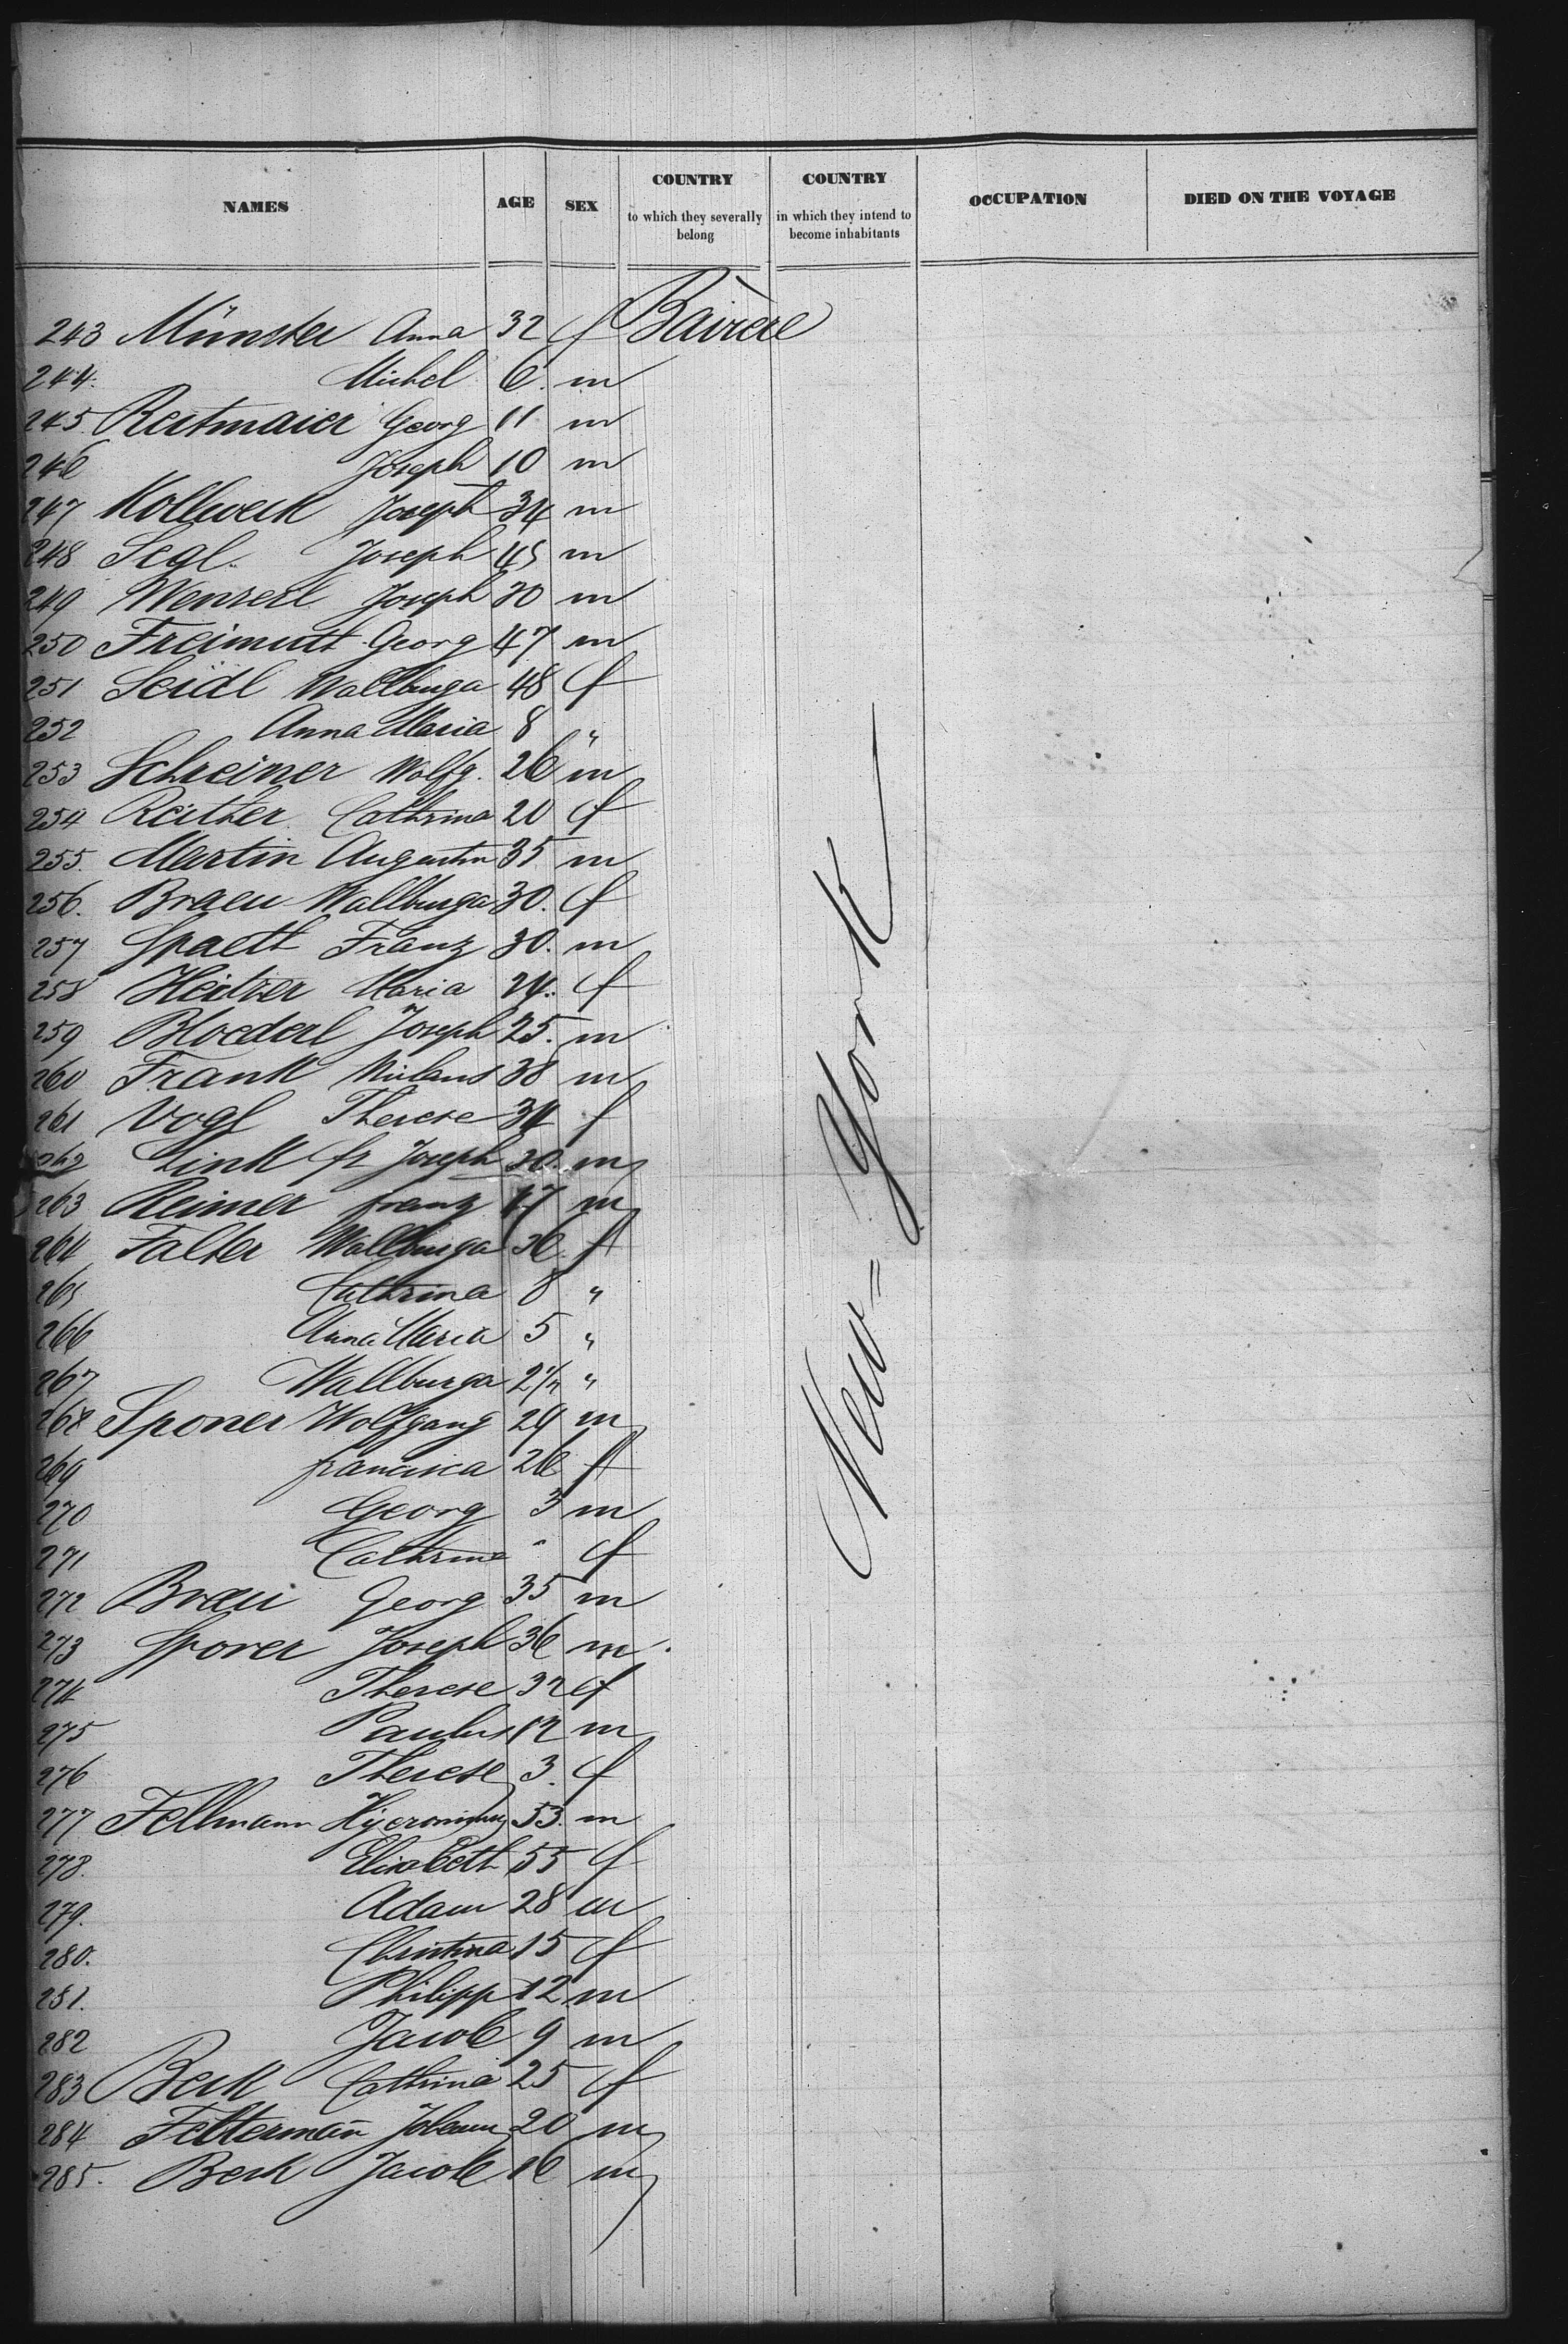 NAMES AGE SEX COUNTRY to which they severally belong COUNTRY in which they intend to become inhabitants OCCUPATION DIED ON THE VOYAGE
243 Münster Anna 32 f Baviere
244. Michel 6. m
245 Reitmaier Georg 11 m
246 Joseph 10 m
247 Kollweck Joseph 34 m
248 Segl. Joseph 45 m
249 Wenzerl Joseph 30 m
250 Freimutt Georg 47 m
251 Seidl Wallburga 48 f
252 Anna Maria 8 "
253 Schreiner Wolfg. 26 m
254 Reither Cathrina 20 f
255. Martin Augustin 35 m
256. Braeu Wallburga 30. f
257 Spaett Franz 30. m
258 Heitzer Maria 24. f
259 Bloederl Joseph 25. m
260 Frank 38 m
261 Vogl Therese 34 f
262 Link fz Joseph 30. m
263 Reimer franz 17 m
264 Falter Wallburga 36 f
265 Cathrina 8 "
266 Anna Maria 5 "
267 Wallburga 2 1/2 "
268 Sponer Wolfgang 29 m
269 francisca 26 f
270 Georg 3 m
271 Cathrina " f
272 Braeu Georg 35 m
273 Sporer Joseph 36 m.
274 Therese 32 f
275 Paulus 12 m
276 Therese 3. f
277 Fellmann Hyeronimus 53. m
278. Elisabeth 55 f
279. Adam 28 m
280. Christina 15 f
281. Philipp 12 m
282 Jacob 9 m
283 Beck Cathrina 25 f
284 Felterman̄ Johann 20 m
285. Beck Jacob 16 m
New=York